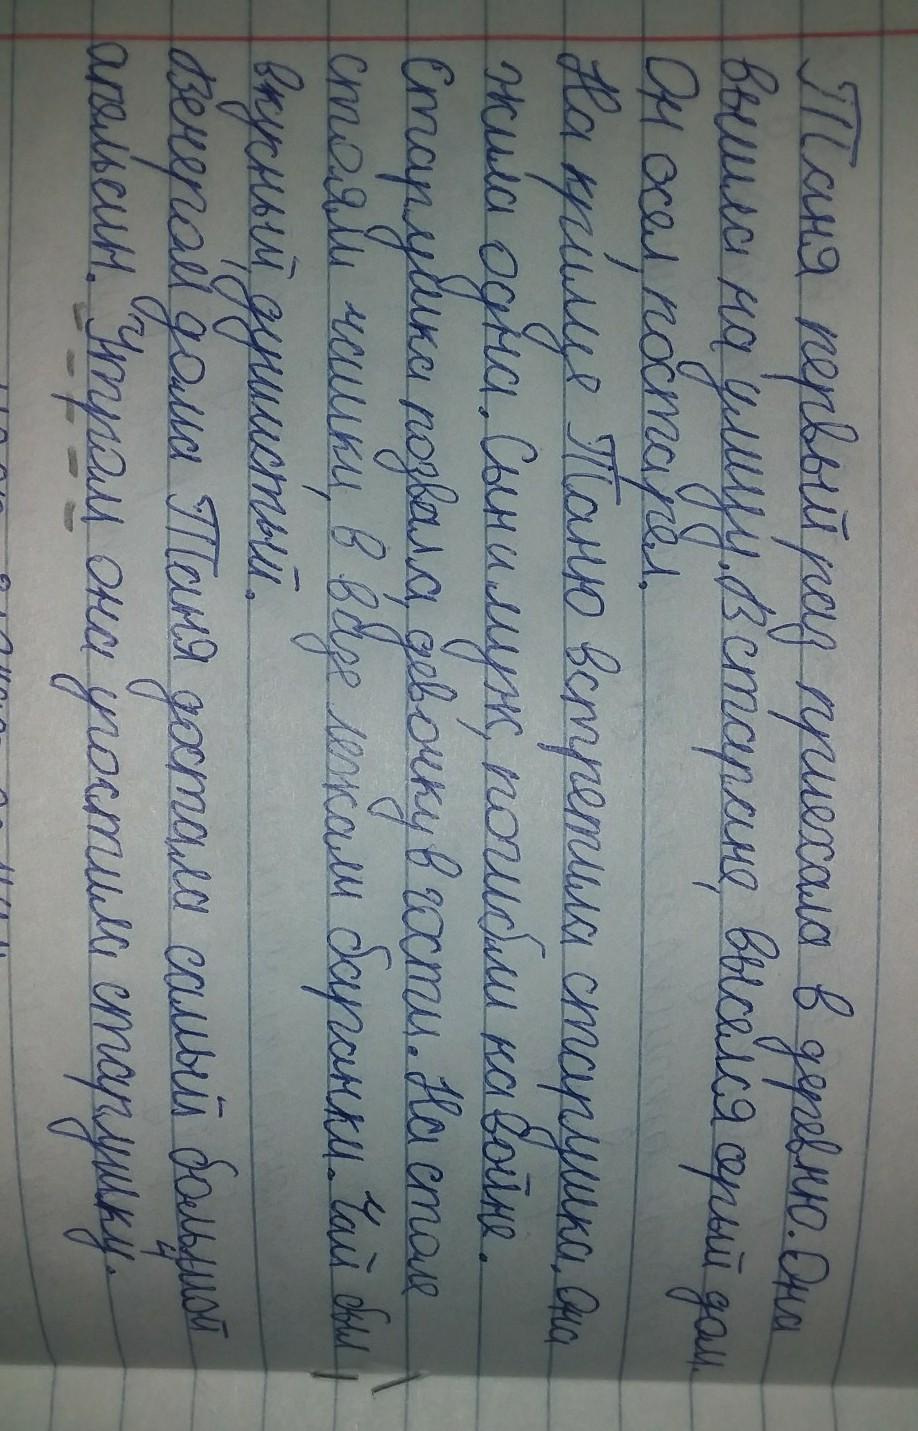 Таня первый раз приехала в деревню. Она
вышла на улицу. В старане, выселся серый дом.
Он осел, постарел.
На крілце Таню встретила старушка. Она
жила одна. Сын и муж, погибли на войне.
Старушка позвала, девочку в гости. На столе
стояли чашки, в вазе лежали баранки. Чай был
вкусный, душистый.
Вечером дома Таня достала самый большой
апельсин. Утром она угостила старушку.